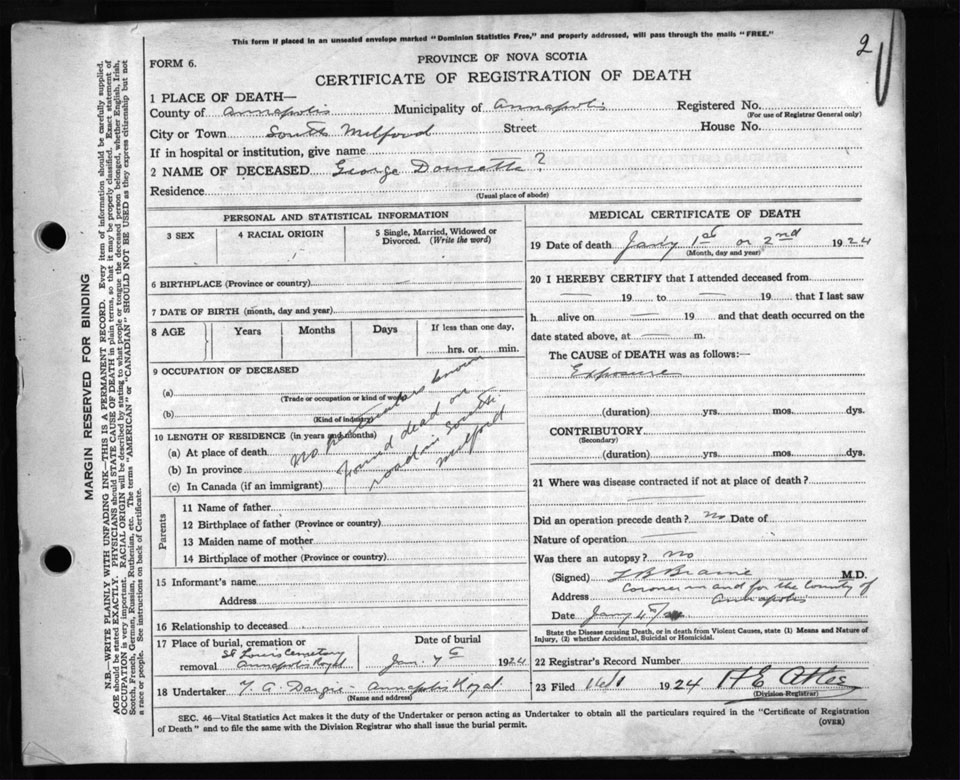 This form if placed in an unsealed envelope marked "Dominion Statistics Free," and properly addressed, will pass through the mails "FREE."
2
FORM 6.
PROVINCE OF NOVA SCOTIA
CERTIFICATE OF REGISTRATION OF DEATH
1 PLACE OF DEATH—
County of Annapolis Municipality of Annapolis Registered No.
(For use of Registrar General only)
City or Town South Milford Street House No.
If in hospital or institution, give name
2 NAME OF DECEASED George Doucette ?
Residence
(Usual place of abode)
PERSONAL AND STATISTICAL INFORMATION
3 SEX 4 RACIAL ORIGIN 5 Single, Married, Widowed or Divorced. (Write the word)
6 BIRTHPLACE (Province or country)
7 DATE OF BIRTH (month, day and year)
8 AGE Years Months Days If less than one day,
hrs. or min.
9 OCCUPATION OF DECEASED
(a)
(Trade or occupation or kind of work)
(b)
(Kind of industry)
10 LENGTH OF RESIDENCE (in years and months)
(a) At place of death
(b) In province
(c) In Canada (if an immigrant)
No particulars known
Found dead on
road in South
Milford
Parents
11 Name of father
12 Birthplace of father (Province or country)
13 Maiden name of mother
14 Birthplace of mother (Province or country)
15 Informant's name
Address
16 Relationship to deceased
17 Place of burial, cremation or removal Date of burial
St Louis Cemetery
Annapolis Royal Jan. 7th 1924
18 Undertaker T. A. Dargie - Annapolis Royal
(Name and address)
MEDICAL CERTIFICATE OF DEATH
19 Date of death Jany 1st or 2nd 1924
(Month, day and year)
20 I HEREBY CERTIFY that I attended deceased from
— 19 to — 19 that I last saw
h alive on — 19 and that death occurred on the
date stated above, at — m.
The CAUSE of DEATH was as follows:—
Exposure
(duration) yrs. mos. dys.
CONTRIBUTORY
(Secondary)
(duration) yrs. mos. dys.
21 Where was disease contracted if not at place of death?
Did an operation precede death? No Date of
Nature of operation —
Was there an autopsy? No
(Signed) L B Braine M.D.
Address Coroner in and for the County of
Annapolis
Date Jany 4th/24
State the Disease causing Death, or in death from Violent Causes, state (1) Means and Nature of Injury, (2) whether Accidental, Suicidal or Homicidal.
22 Registrar's Record Number
23 Filed 1924 H E Atlee
(Division Registrar)
SEC. 46—Vital Statistics Act makes it the duty of the Undertaker or person acting as Undertaker to obtain all the particulars required in the "Certificate of Registration
of Death" and to file the same with the Division Registrar who shall issue the burial permit. (OVER)
MARGIN RESERVED FOR BINDING
N.B.—WRITE PLAINLY WITH UNFADING INK—THIS IS A PERMANENT RECORD. Every item of information should be carefully supplied.
AGE should be stated EXACTLY. PHYSICIANS should STATE CAUSE OF DEATH in plain terms, so that it may be properly classified. Exact statement of
OCCUPATION is very important. RACIAL ORIGIN will be described by stating to what people or tongue the deceased person belonged, whether English, Irish,
Scotch, French, German, Russian, Ruthenian, etc. The terms "AMERICAN" or "CANADIAN" SHOULD NOT BE USED as they express citizenship but not
a race or people. See instructions on back of Certificate.